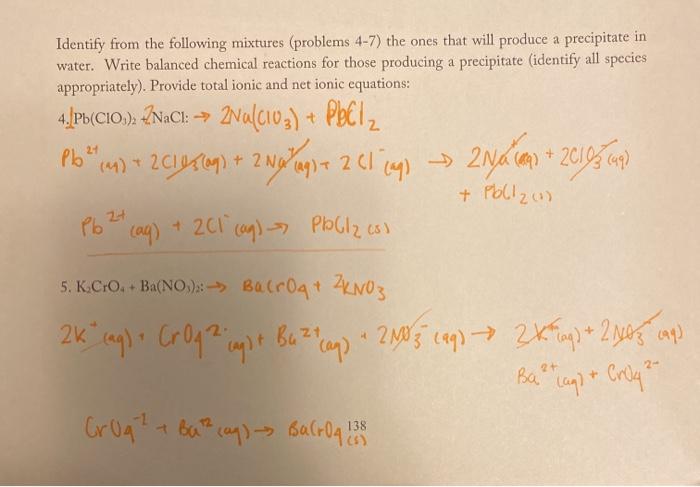 Identify from the following mixtures (problems 4-7) the ones that will produce a precipitate in
water. Write balanced chemical reactions for those producing a precipitate (identify all species
appropriately). Provide total ionic and net ionic equations:
4. 1 Pb(ClO₃)₂ + 2 NaCl: → 2Na(ClO₃) + PbCl₂
Pb²⁺ (aq) + 2ClO₃⁻ (aq) + 2Na⁺ (aq) + 2Cl⁻ (aq) → 2Na⁺ (aq) + 2ClO₃⁻ (aq)
+ PbCl₂ (s)
Pb²⁺ (aq) + 2Cl⁻ (aq) → PbCl₂ (s)
5. K₂CrO₄ + Ba(NO₃)₂: → BaCrO₄ + 2KNO₃
2K⁺ (aq) + CrO₄²⁻ (aq) + Ba²⁺ (aq) + 2NO₃⁻ (aq) → 2K⁺ (aq) + 2NO₃⁻ (aq)
Ba²⁺ (aq) + CrO₄²⁻
CrO₄⁻² + Ba⁺² (aq) → BaCrO₄ (s)
138